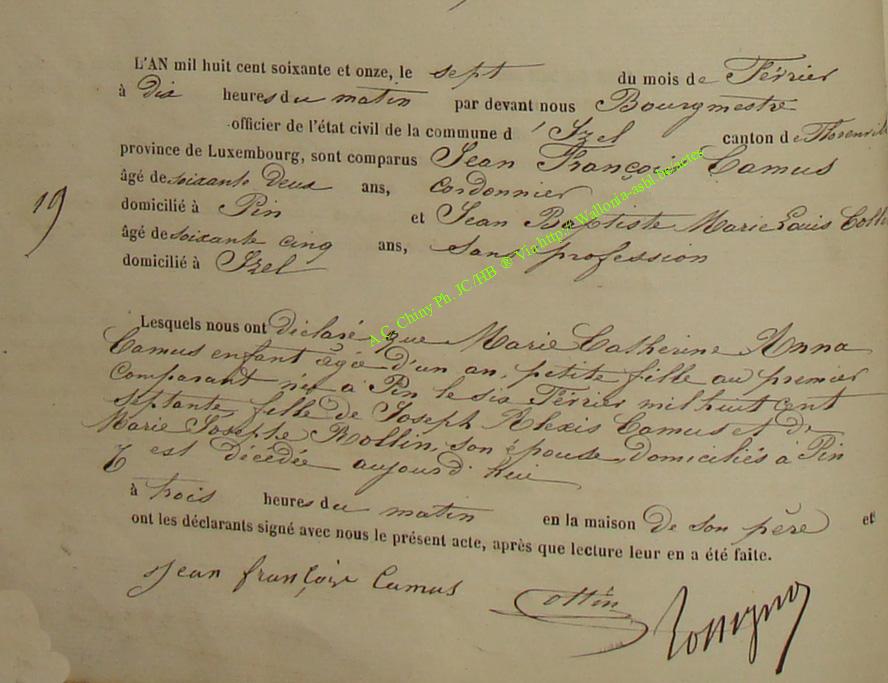 L'AN mil huit cent soixante et onze, le sept du mois de Février
à dix heures du matin par devant nous Bourgmestre
officier de l'état civil de la commune d'Izel canton de Florenville
province de Luxembourg, sont comparus Jean François Camus
âgé de soixante deux ans, Cordonnier
domicilié à Pin et Jean Baptiste Marie Louis
âgé de soixante cinq ans, sans profession
domicilié à Izel
19
Lesquels nous ont déclaré que Marie Catherine Anna
Camus enfant âgée d'un an, petite fille au premier
comparant née à Pin le six Février mil huit cent
septante, fille de Joseph Alexis Camus et d'
Marie Josephe Rollin, son épouse, domiciliés à Pin
y est décédée aujourd'hui
à trois heures du matin en la maison de son père et
ont les déclarants signé avec nous le présent acte, après que lecture leur en a été faite.
Jean françois Camus
A.C. Chiny Ph. JC/HB ® Via http://Wallonia-asbl.be/actes